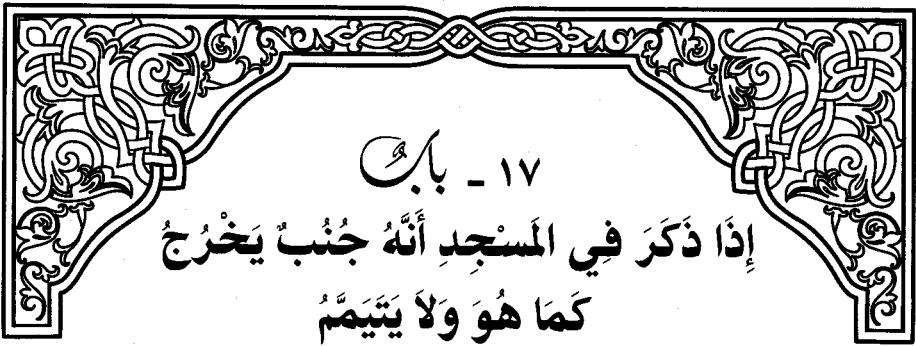 ١٧ - بابٌ
إِذَا ذَكَرَ فِي المَسْجِدِ أَنَّهُ جُنُبٌ يَخْرُجُ
كَمَا هُوَ وَلاَ يَتَيَمَّمُ